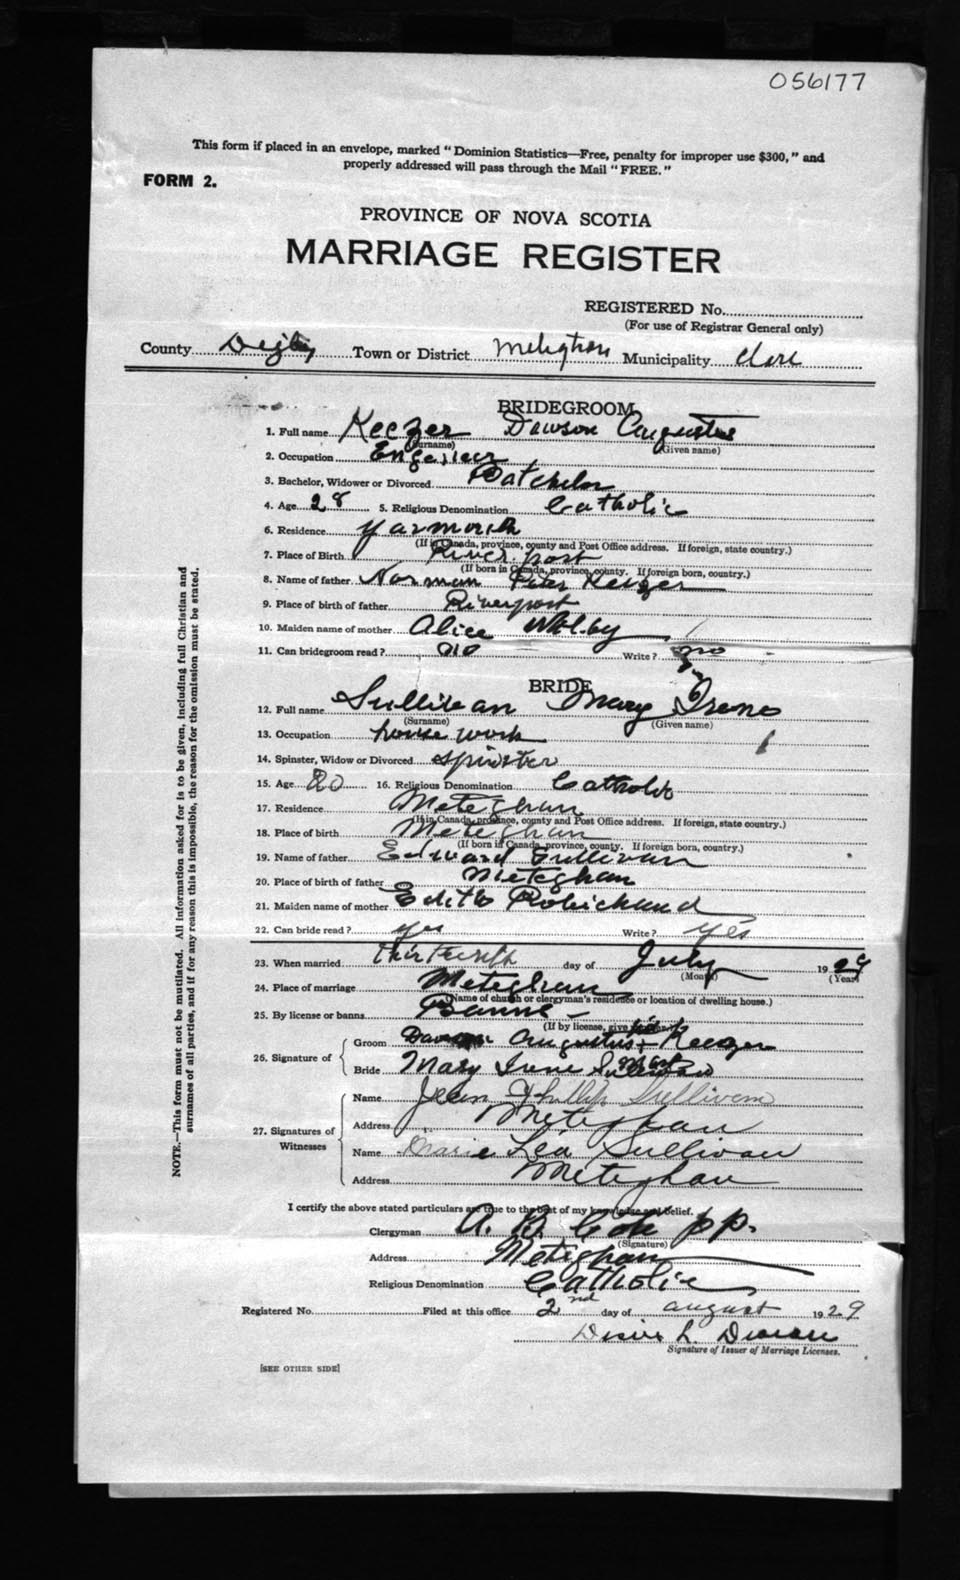 056177
This form if placed in an envelope, marked "Dominion Statistics—Free, penalty for improper use $300," and
properly addressed will pass through the Mail "FREE."
FORM 2.
PROVINCE OF NOVA SCOTIA
MARRIAGE REGISTER
REGISTERED No.
(For use of Registrar General only)
County Digby Town or District Meteghan Municipality Clare
BRIDEGROOM
1. Full name Keezer Dawson Augustus
(Surname) (Given name)
2. Occupation
3. Bachelor, Widower or Divorced Batchelor
4. Age 28 5. Religious Denomination Catholic
6. Residence Yarmouth
(If in Canada, province, county and Post Office address. If foreign, state country.)
7. Place of Birth River port
(If born in Canada, province, county. If foreign born, country.)
8. Name of father Norman Peter Keezer
9. Place of birth of father Riverport
10. Maiden name of mother Alice
11. Can bridegroom read? no Write? no
BRIDE
12. Full name Sullivan Mary Irene
(Surname) (Given name)
13. Occupation house work
14. Spinster, Widow or Divorced spinster
15. Age 20 16. Religious Denomination Catholic
17. Residence Meteghan
(If in Canada, province, county and Post Office address. If foreign, state country.)
18. Place of birth Meteghan
(If born in Canada, province, county. If foreign born, country.)
19. Name of father Edward Sullivan
20. Place of birth of father Meteghan
21. Maiden name of mother Edith Robichaud
22. Can bride read? yes Write? yes
23. When married day of July 1929
(Month) (Year)
24. Place of marriage Meteghan
(Name of church or clergyman's residence or location of dwelling house.)
25. By license or banns Banns
(If by license, give
26. Signature of
Groom Dawson Augustus + Keezer
Bride Mary Irene Sullivan
27. Signatures of Witnesses
Name Jean Phillip Sullivan
Address Meteghan
Name Marie Léa Sullivan
Address Meteghan
I certify the above stated particulars are true to the best of my knowledge and belief.
Clergyman A. B. Coté pp.
(Signature)
Address Meteghan
Religious Denomination Catholic
Registered No. Filed at this office 2nd day of august 1929
L.
Signature of Issuer of Marriage Licenses.
[SEE OTHER SIDE]
NOTE.—This form must not be mutilated. All information asked for is to be given, including full Christian and
surnames of all parties, and if for any reason this is impossible, the reason for the omission must be stated.